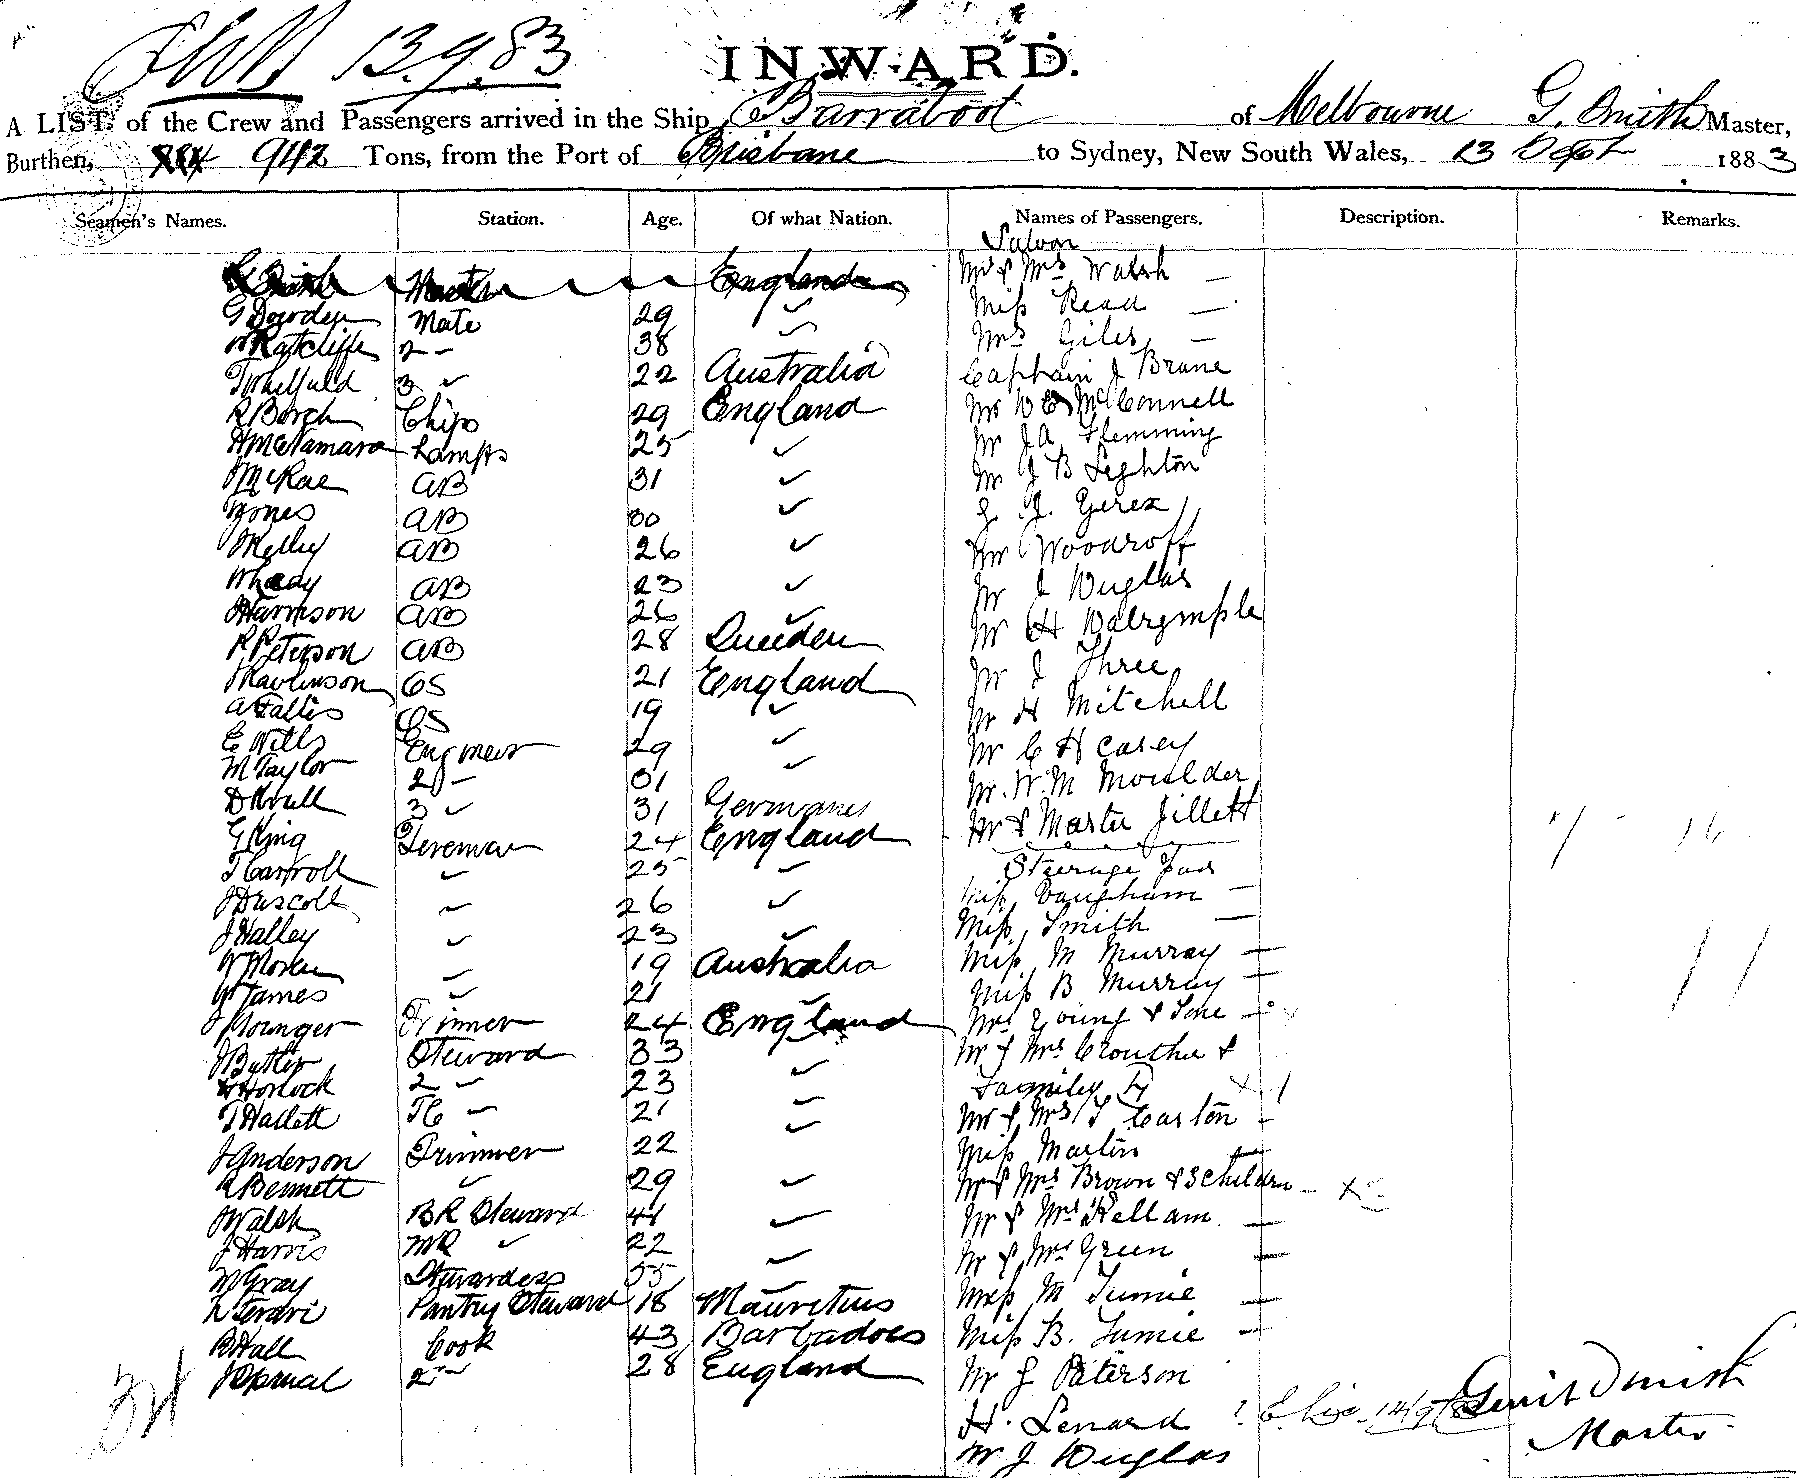 13.9.83
INWARD.
A LIST of the Crew and Passengers arrived in the Ship Barrabool of Melbourne G. Smith Master,
Burthen, 942 Tons, from the Port of Brisbane to Sydney, New South Wales, 13 Sept 1883
Seamen's Names. Station. Age. Of what Nation. Names of Passengers. Description. Remarks.
Saloon
England Mr & Mrs Walsh —
G Dowden Mate 29 ✓ Miss Read —
W Ratcliffe 2 — 38 ✓ Mrs Giles —
3 ✓ 22 Australia Captain J Brune
R Borch Chips 29 England Mr McConnell
H McNamara Lamps 25 ✓ Mr J A Flemming
J McRae AB 31 ✓ Mr J B Leghton
Jones AB 30 ✓ J. Gerex
J Kelly AB 26 ✓ Mr Woodroff
AB 23 ✓ Mr J Duglas
Harrison AB 26 ✓ Mr H Dalrymple
R Peterson AB 28 Sweeden Mr J Three
J Rawlinson OS 21 England Mr H Mitchell
A Fallis OS 19 ✓ Mr C H Casey
E Wills Engineer 29 ✓ Mr. W. M Moulder
M Taylor 2 — 31 ✓ Mr & Master Jillett
D Krull 3 ✓ 31 Germany
G King Fireman 24 England Steerage Pass
T Carroll ✓ 25 ✓ Miss Vaugham —
J Driscoll ✓ 26 ✓ Miss Smith —
J Halley ✓ 23 ✓ Miss M Murray —
W Moren ✓ 19 Australia Miss B Murray —
W James ✓ 21 ✓ Mrs Young &
J Younger Trimmer 24 England Mr & Mrs Crouther &
J Butler Steward 33 ✓ Family
Horlock 2 ✓ 23 ✓ Mr & Mrs T Carlton —
T Hallett 21 ✓ Miss Martin
J Anderson Trimmer 22 Mr & Mrs Brown & 3 Children —
R Bennett ✓ 29 ✓ Mr & Mrs Kellam —
J Walsh BR Steward 41 ✓ Mr & Mrs Green —
J Harris MR ✓ 22 ✓ Miss M Tumie —
M Gray Stewardess 55 ✓ Miss B. Tumie —
Pantry Steward 18 Mauritius Mr J Peterson
R Hall Cook 43 Barbadoes H. Lenard
28 England Mr J Duglas
34
Master